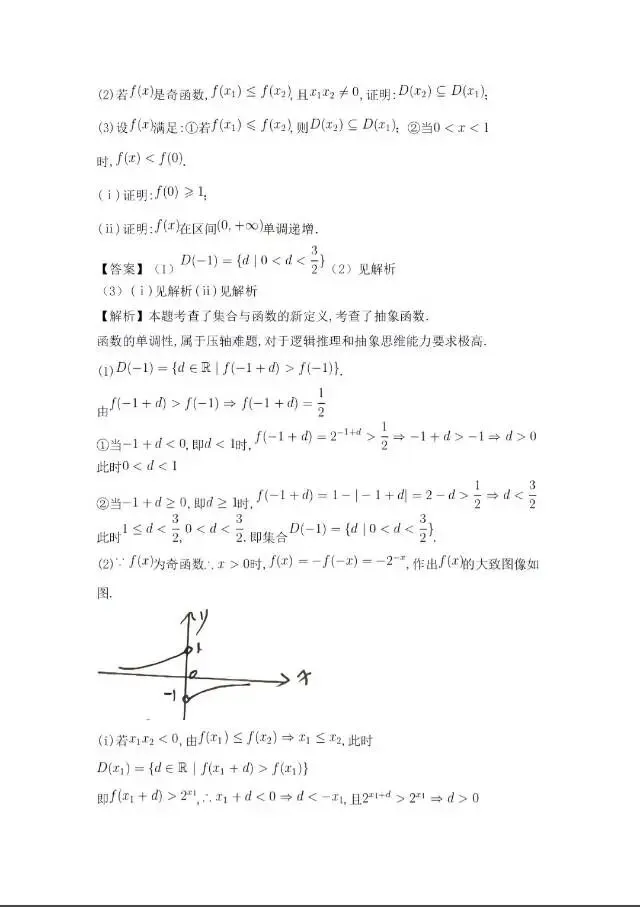 (2)若f(x)是奇函数,f(x₁) ≤ f(x₂),且x₁x₂ ≠ 0,证明:D(x₂) ⊆ D(x₁);
(3)设f(x)满足:①若f(x₁) ⩽ f(x₂),则D(x₂) ⊆ D(x₁); ②当0 < x < 1
时,f(x) < f(0).
(ⅰ)证明:f(0) ⩾ 1;
(ⅱ)证明:f(x)在区间(0, +∞)单调递增.
【答案】(1) D(−1) = {d | 0 < d < 3/2} (2)见解析
(3)(ⅰ)见解析(ⅱ)见解析
【解析】本题考查了集合与函数的新定义,考查了抽象函数.
函数的单调性,属于压轴难题,对于逻辑推理和抽象思维能力要求极高.
(1)D(−1) = {d ∈ ℝ | f(−1 + d) > f(−1)}.
由f(−1 + d) > f(−1) ⇒ f(−1 + d) = 1/2
①当−1 + d < 0,即d < 1时, f(−1 + d) = 2^(−1+d) > 1/2 ⇒ −1 + d > −1 ⇒ d > 0
此时0 < d < 1
②当−1 + d ≥ 0,即d ≥ 1时, f(−1 + d) = 1 − | − 1 + d| = 2 − d > 1/2 ⇒ d < 3/2
此时1 ≤ d < 3/2, 0 < d < 3/2. 即集合D(−1) = {d | 0 < d < 3/2}.
(2)∵ f(x)为奇函数∴ x > 0时, f(x) = −f(−x) = −2^(−x), 作出f(x)的大致图像如
图.
y
1
0
x
−1
(ⅰ)若x₁x₂ < 0,由f(x₁) ≤ f(x₂) ⇒ x₁ ≤ x₂,此时
D(x₁) = {d ∈ ℝ | f(x₁ + d) > f(x₁)}
即f(x₁ + d) > 2^(x₁),∴ x₁ + d < 0 ⇒ d < −x₁,且2^(x₁+d) > 2^(x₁) ⇒ d > 0